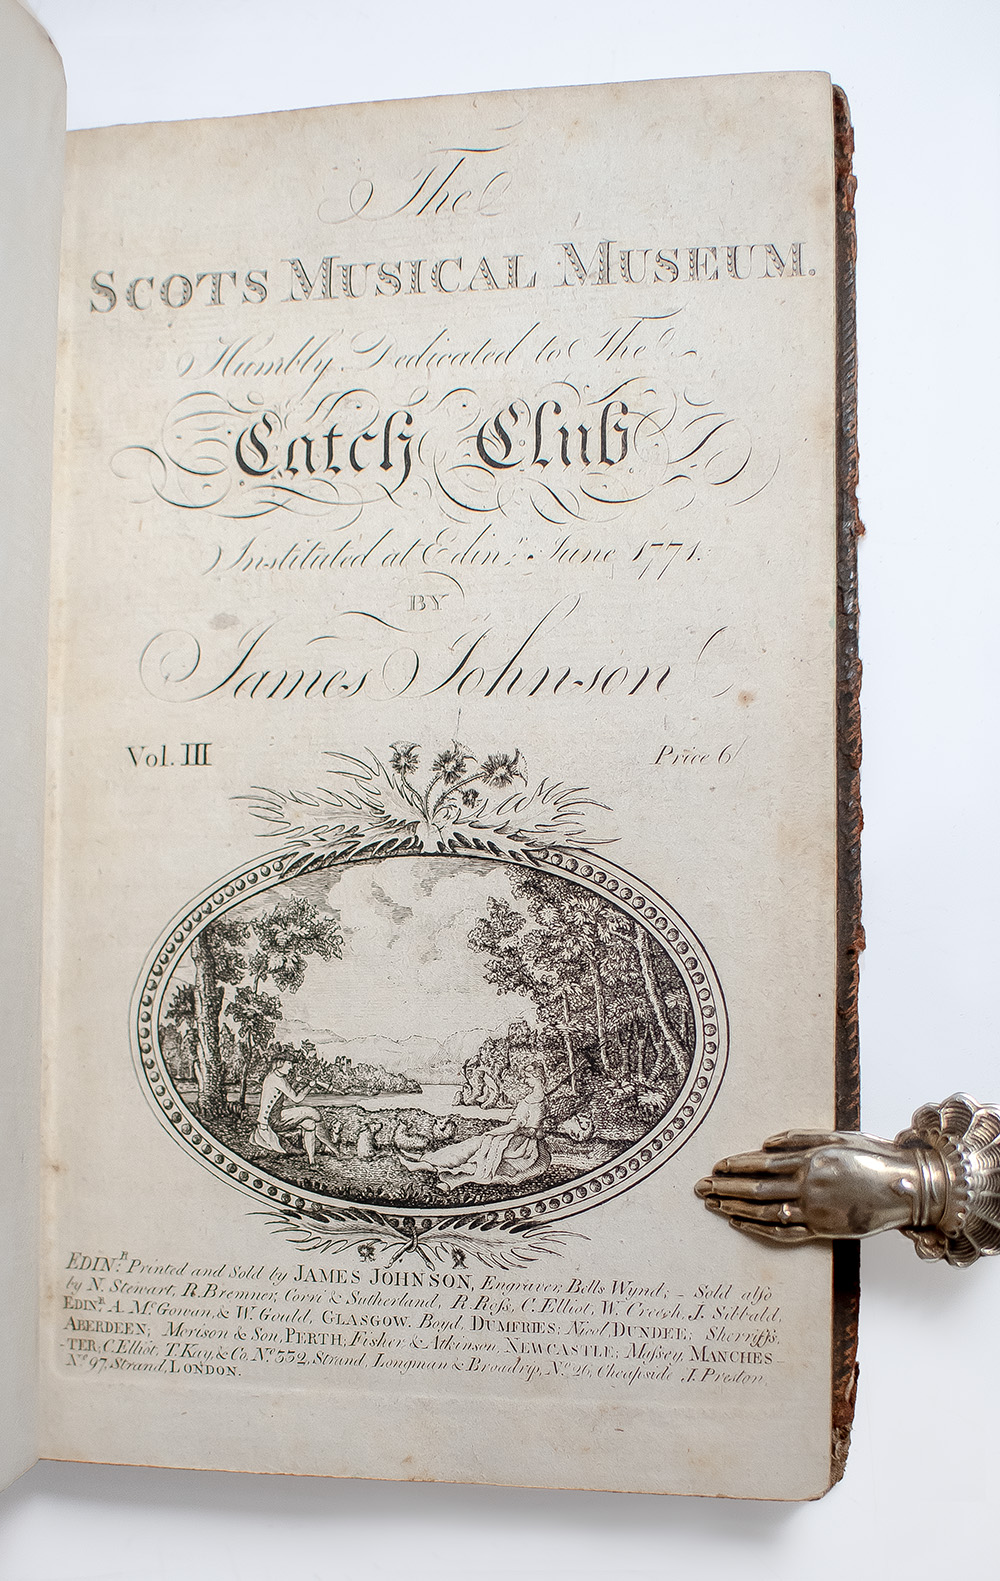 The
SCOTS MUSICAL MUSEUM.
Humbly Dedicated to The
Catch Club
Instituted at Edinr. June 1771.
BY
James Johnson
Vol. III Price 6/
EDINR. Printed and Sold by JAMES JOHNSON, Engraver, Bells Wynd; _ Sold also
by N. Stewart, R. Bremner, Corri & Sutherland, R. Roſs, C. Elliot, W. Creech, J. Sibbald,
EDINR. A. Mc.Gowan, & W. Gould, GLASGOW. Boyd, DUMFRIES; Nicol DUNDEE; Sherriffs.
ABERDEEN; Morison & Son, PERTH; Fisher & Atkinson, NEWCASTLE; Maſsey, MANCHES-
-TER; C. Elliot, T. Kay, & Co. No. 332, Strand, Longman & Broadrip, No. 26, Cheapside J. Preston,
No. 97. Strand, LONDON.